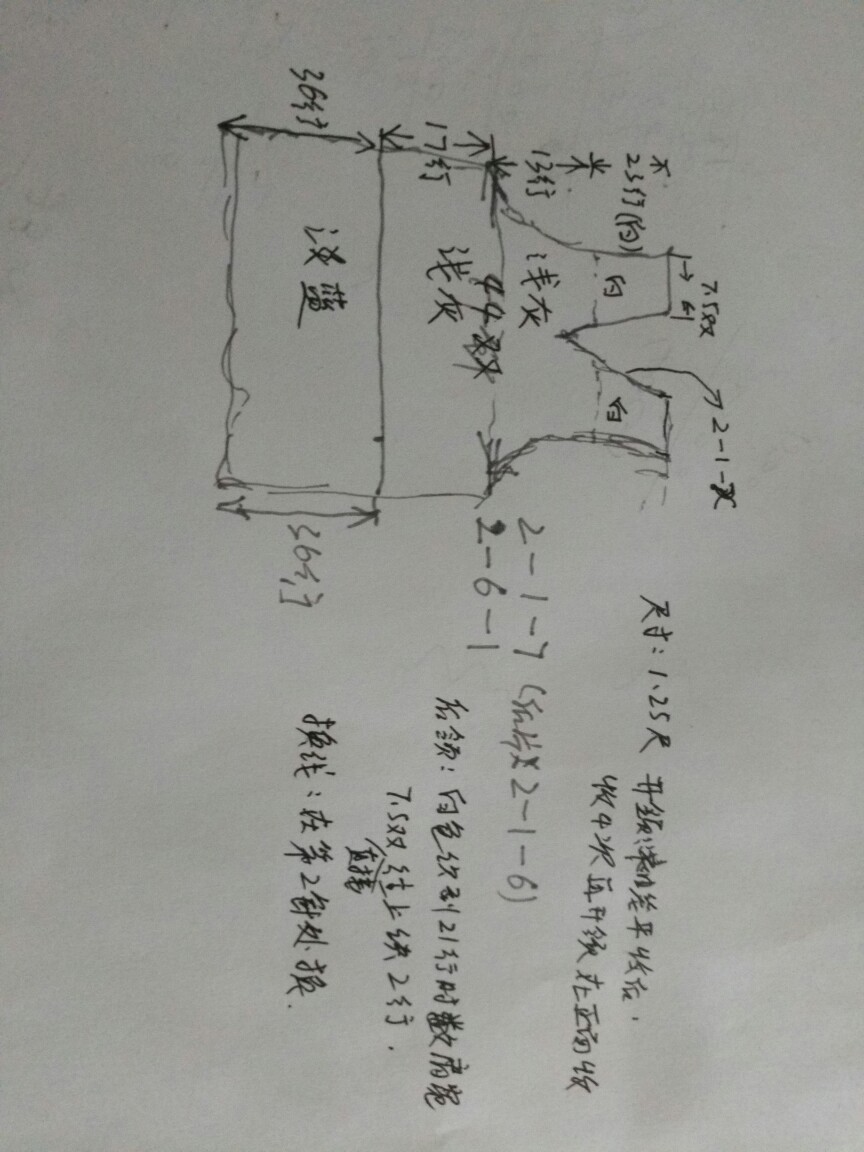 36行
17行
13行
23行(白)
7.5双
浅蓝
浅灰
44双
浅灰
白
白
2-1-
36行
2-1-7(后片收2-1-6)
2-6-1
尺寸:1.25尺
开领:
平收后,
收4次再开领在正面收
后领:白色织到21行时数肩宽
7.5双往上织2行.
直接
换线:在第2针处换.